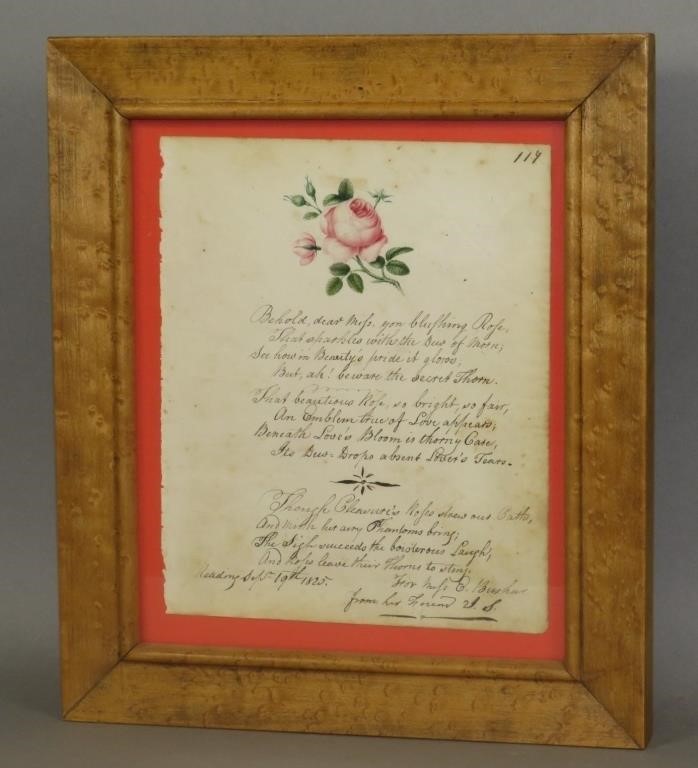 117
Behold, dear Miſs, yon bluſhing Roſe,
That sparkles with the Dew of Morn;
See how in Beauty's pride it glows;
But, ah! beware the secret Thorn.
That beautious Roſe, so bright, so fair,
An Emblem true of Love appears;
Beneath Love's Bloom is thorny Care,
Its Dew-Drops absent Lover's Tears.
Though Pleasure's Roſes strew our Paths,
And Mirth her airy Phantoms bring;
The Sigh succeeds the boisterous Laugh,
And Roſes leave their Thorns to sting.
Reading Sept 19th 1825. For Miſs E.
from her Friend J. S.